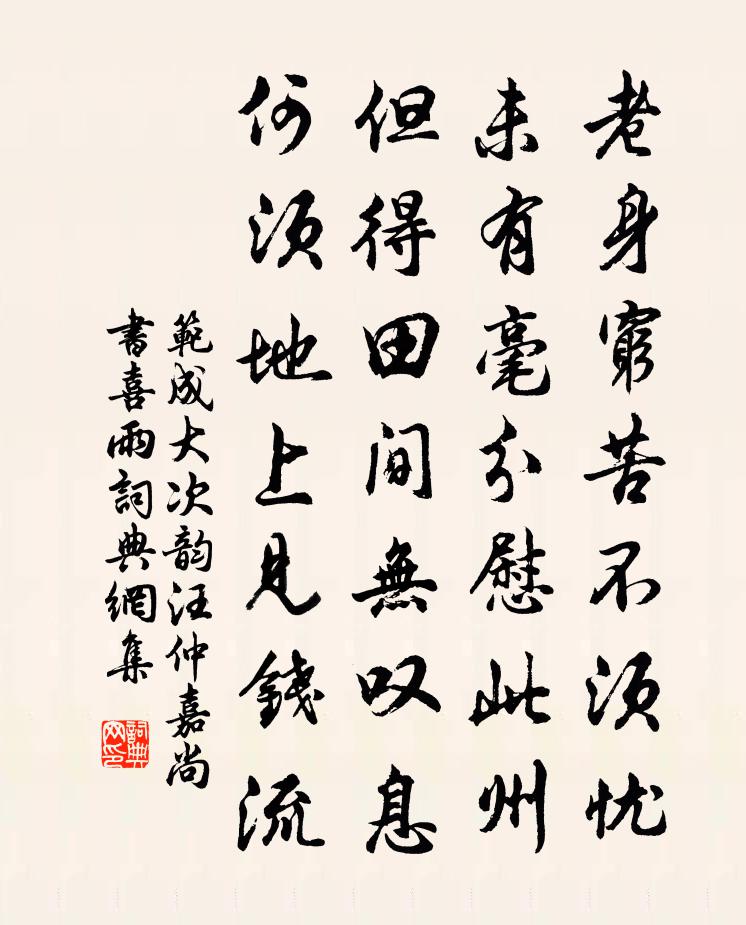 老身窮苦不須忧
未有毫分慰此州
但得田間無叹息
何須地上見錢流
範成大次韵汪仲嘉尚
書喜雨詞典網集
詞典网印